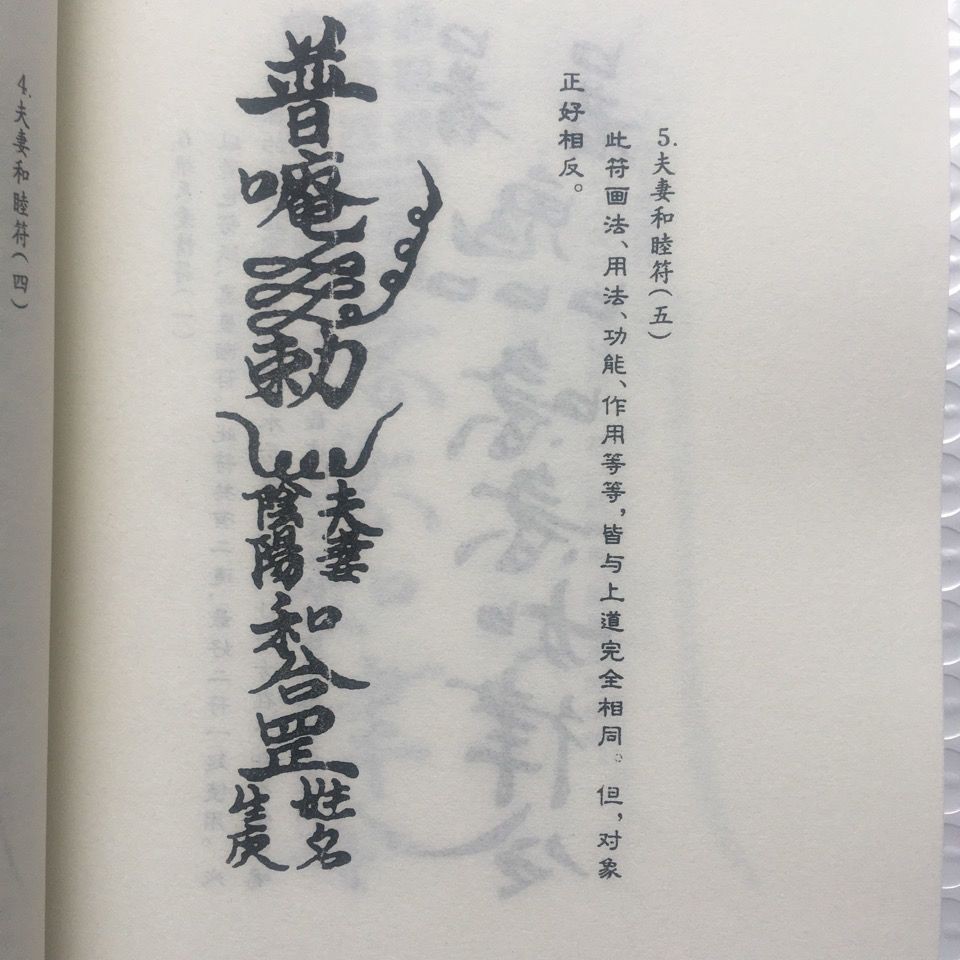 5.夫妻和睦符(五)
此符画法、用法、功能、作用等等,皆与上道完全相同。但,对象
正好相反。
普
唵
勅
夫妻
陰陽
和合
罡
姓名
生庚
4.夫妻和睦符(四)